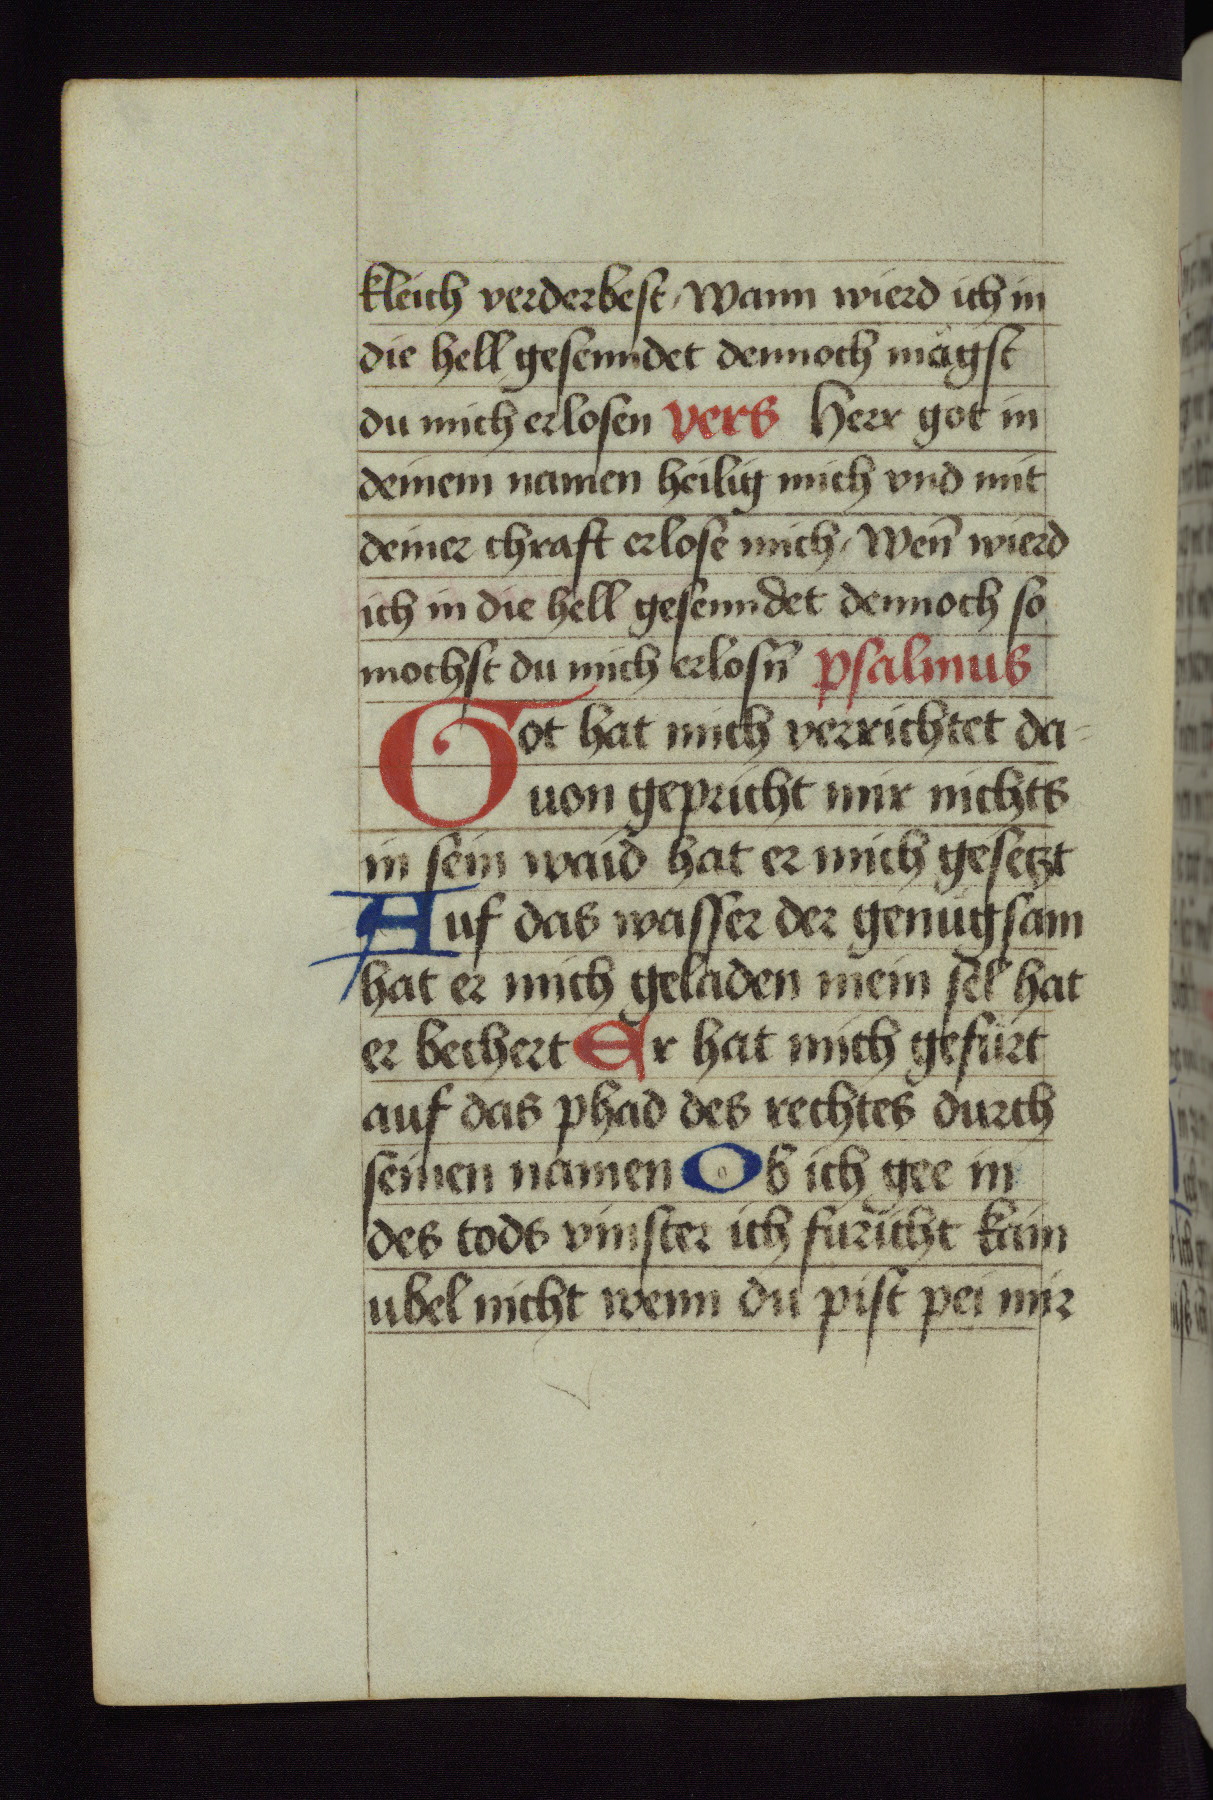 kleich verderbest, Wann wierd ich in
die hell gesenndet dennoch mågst
du mich erlosen vers Herr got in
deinem namen heilig mich vnd mit
deiner chraft erlose mich, Wen̄ wierd
ich in die hell gesenndet dennoch so
mochst du mich erlosn̄ psalmus
Got hat mich verrichtet da-
uon gepricht mir nichts
in sein waid hat er mich gesetzt
Auf das wasser der genügsam
hat er mich geladen mein sel hat
er bechert Er hat mich gefürt
auf das phad des rechtes durch
seinen namen Ob ich gee in
des tods vinster ich füricht kain
ubel nicht wenn du pist pei mir